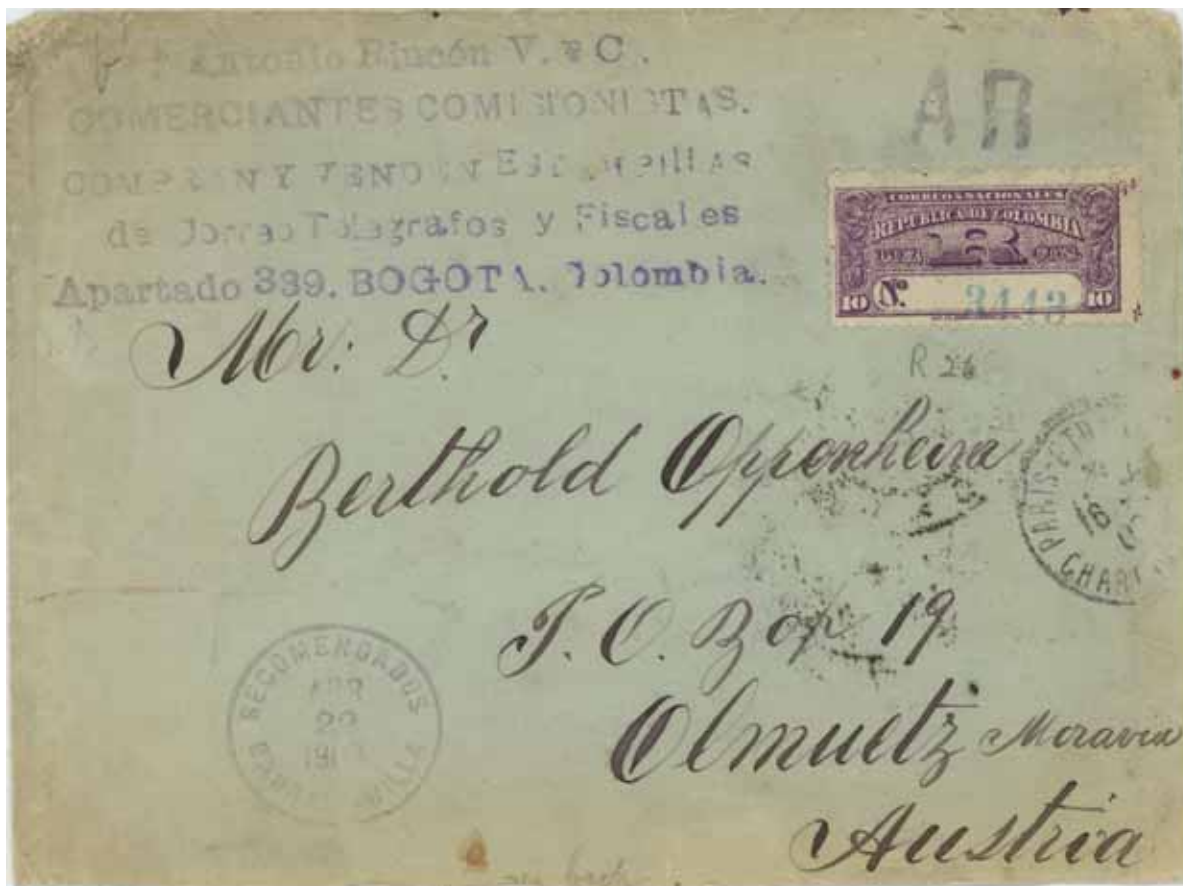 Antonio Rincón V. & C.
COMERCIANTES COMISIONISTAS.
COMPRAN Y VENDEN ESTAMPILLAS
de Correo Telegrafos y Fiscales
Apartado 339. BOGOTA. Colombia.
AR
CORREOS NACIONALES
REPUBLICA DE COLOMBIA
DIEZ R CVOS.
10 No. 3443 10
R 26
Mr: Dr
Berthold Oppenheim
P. O. Box 19
Olmuetz Moravia
Austria
PARIS-ETR
16
CHAR
RECOMENDADOS
ABR
22
191